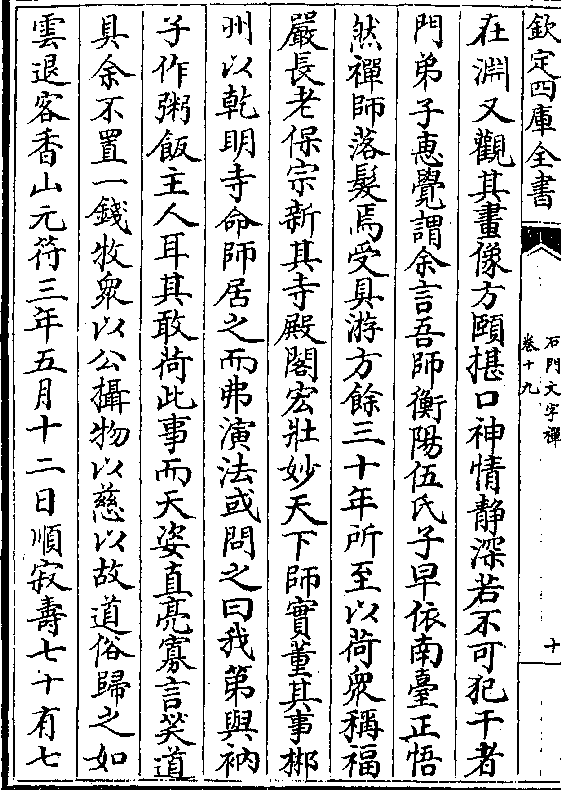 欽定四庫全書
石門文字禪
卷十九
十
在淵又觀其畫像方頤椹口神情靜深若不可犯干者
門弟子惠覺謂余言吾師衡陽伍氏子早依南臺正悟
然禪師落髮焉受具游方餘三十年所至以荷衆稱福
嚴長老保宗新其寺殿閣宏壯妙天下師實董其事郴
州以乾明寺命師居之而弗演法或問之曰我第與衲
子作粥飯主人耳其敢荷此事而天姿直亮寡言笑道
具余不置一錢牧衆以公攝物以慈以故道俗歸之如
雲退客香山元符三年五月十二日順寂壽七十有七